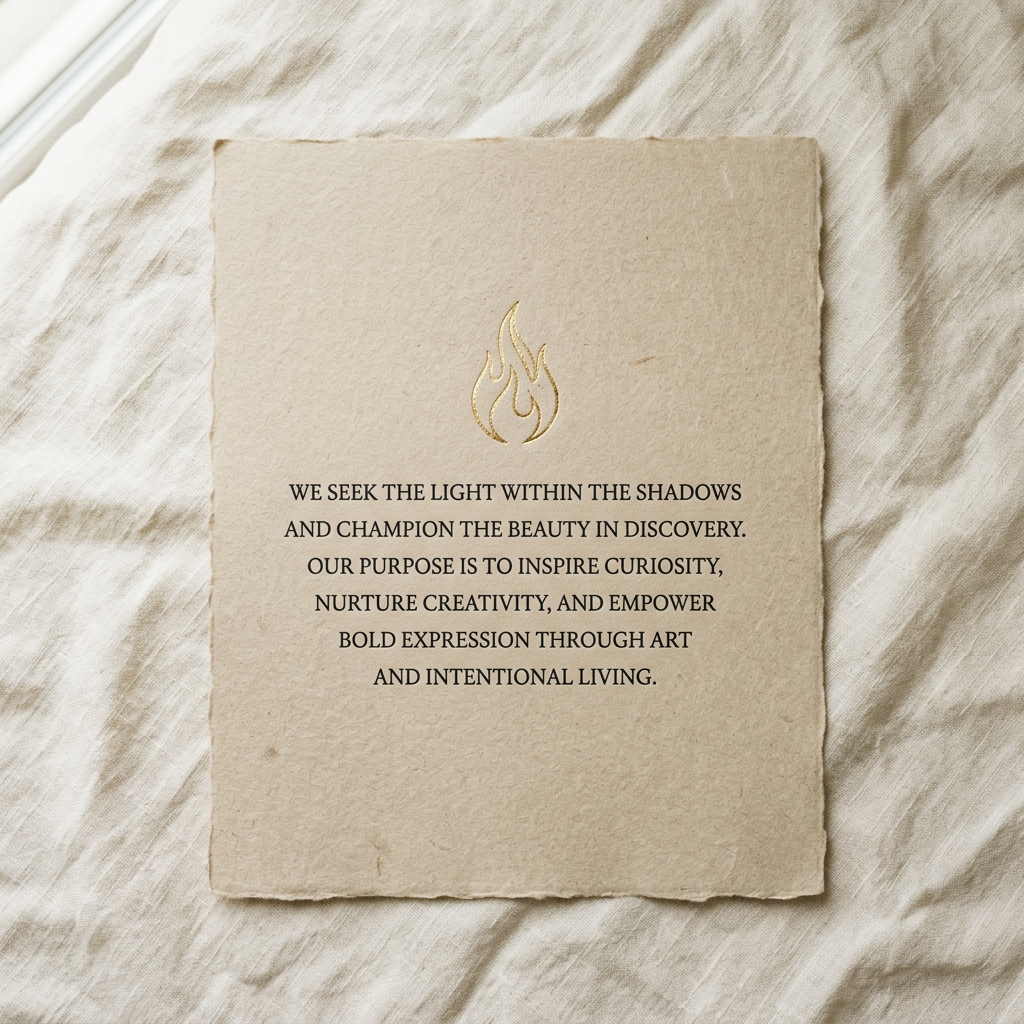 WE SEEK THE LIGHT WITHIN THE SHADOWS
AND CHAMPION THE BEAUTY IN DISCOVERY.
OUR PURPOSE IS TO INSPIRE CURIOSITY,
NURTURE CREATIVITY, AND EMPOWER
BOLD EXPRESSION THROUGH ART
AND INTENTIONAL LIVING.